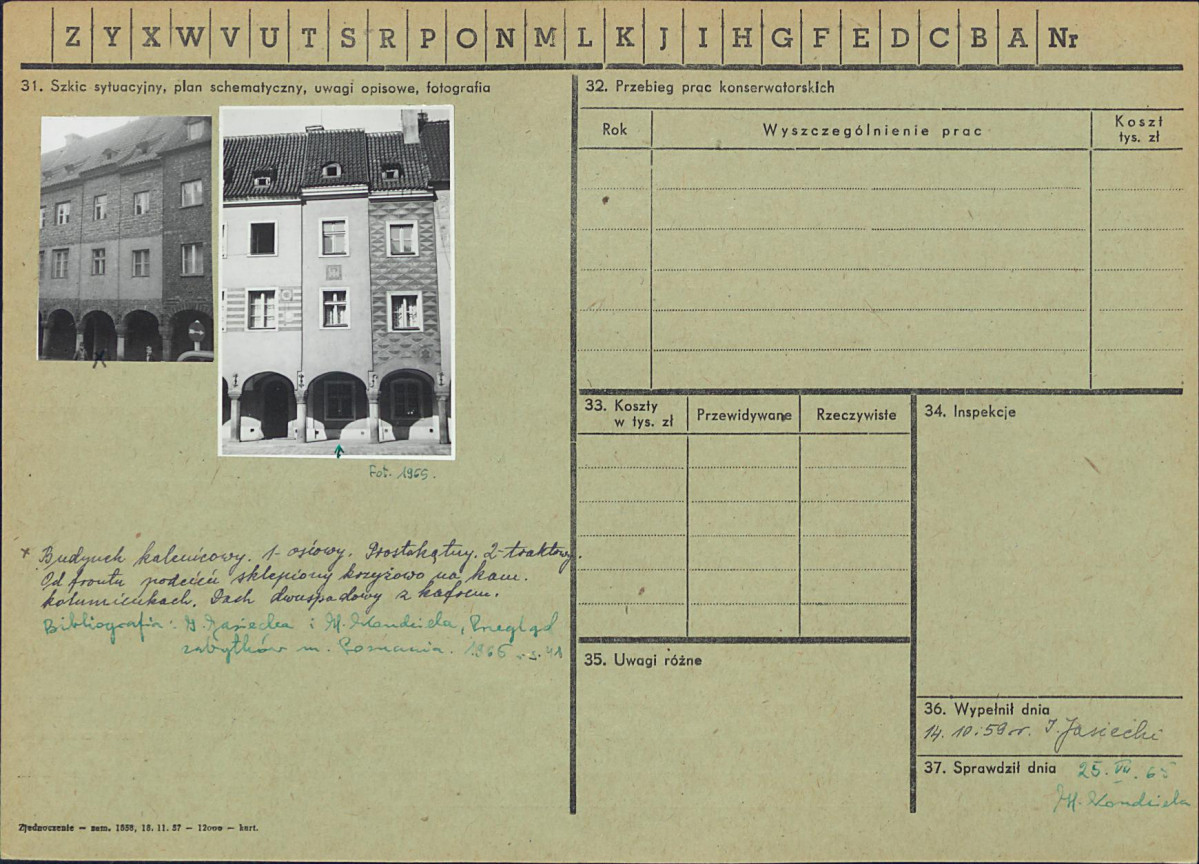 Z Y X W V U T S R P O N M L K J I H G F E D C B A Nr
31. Szkic sytuacyjny, plan schematyczny, uwagi opisowe, fotografia
Fot. 1965.
x Budynek kalenicowy. 1-osiowy. Prostokątny. 2-traktowy.
Od frontu podcień sklepiony krzyżowo na kam.
kolumienkach. Dach dwuspadowy z kaferem.
Bibliografia: I. Jasiecka i H. Kondziela, Przegląd
zabytków m. Poznania. 1965 s. 41
Zjednoczenie — zam. 1858, 18. 11. 57 — 12000 — kart.
32. Przebieg prac konserwatorskich
Rok
Wyszczególnienie prac
Koszt
tys. zł
33. Koszty
w tys. zł
Przewidywane
Rzeczywiste
34. Inspekcje
35. Uwagi różne
36. Wypełnił dnia
14. 10. 59 r. I. Jasiecki
37. Sprawdził dnia 25. VII. 65
H. Kondziela